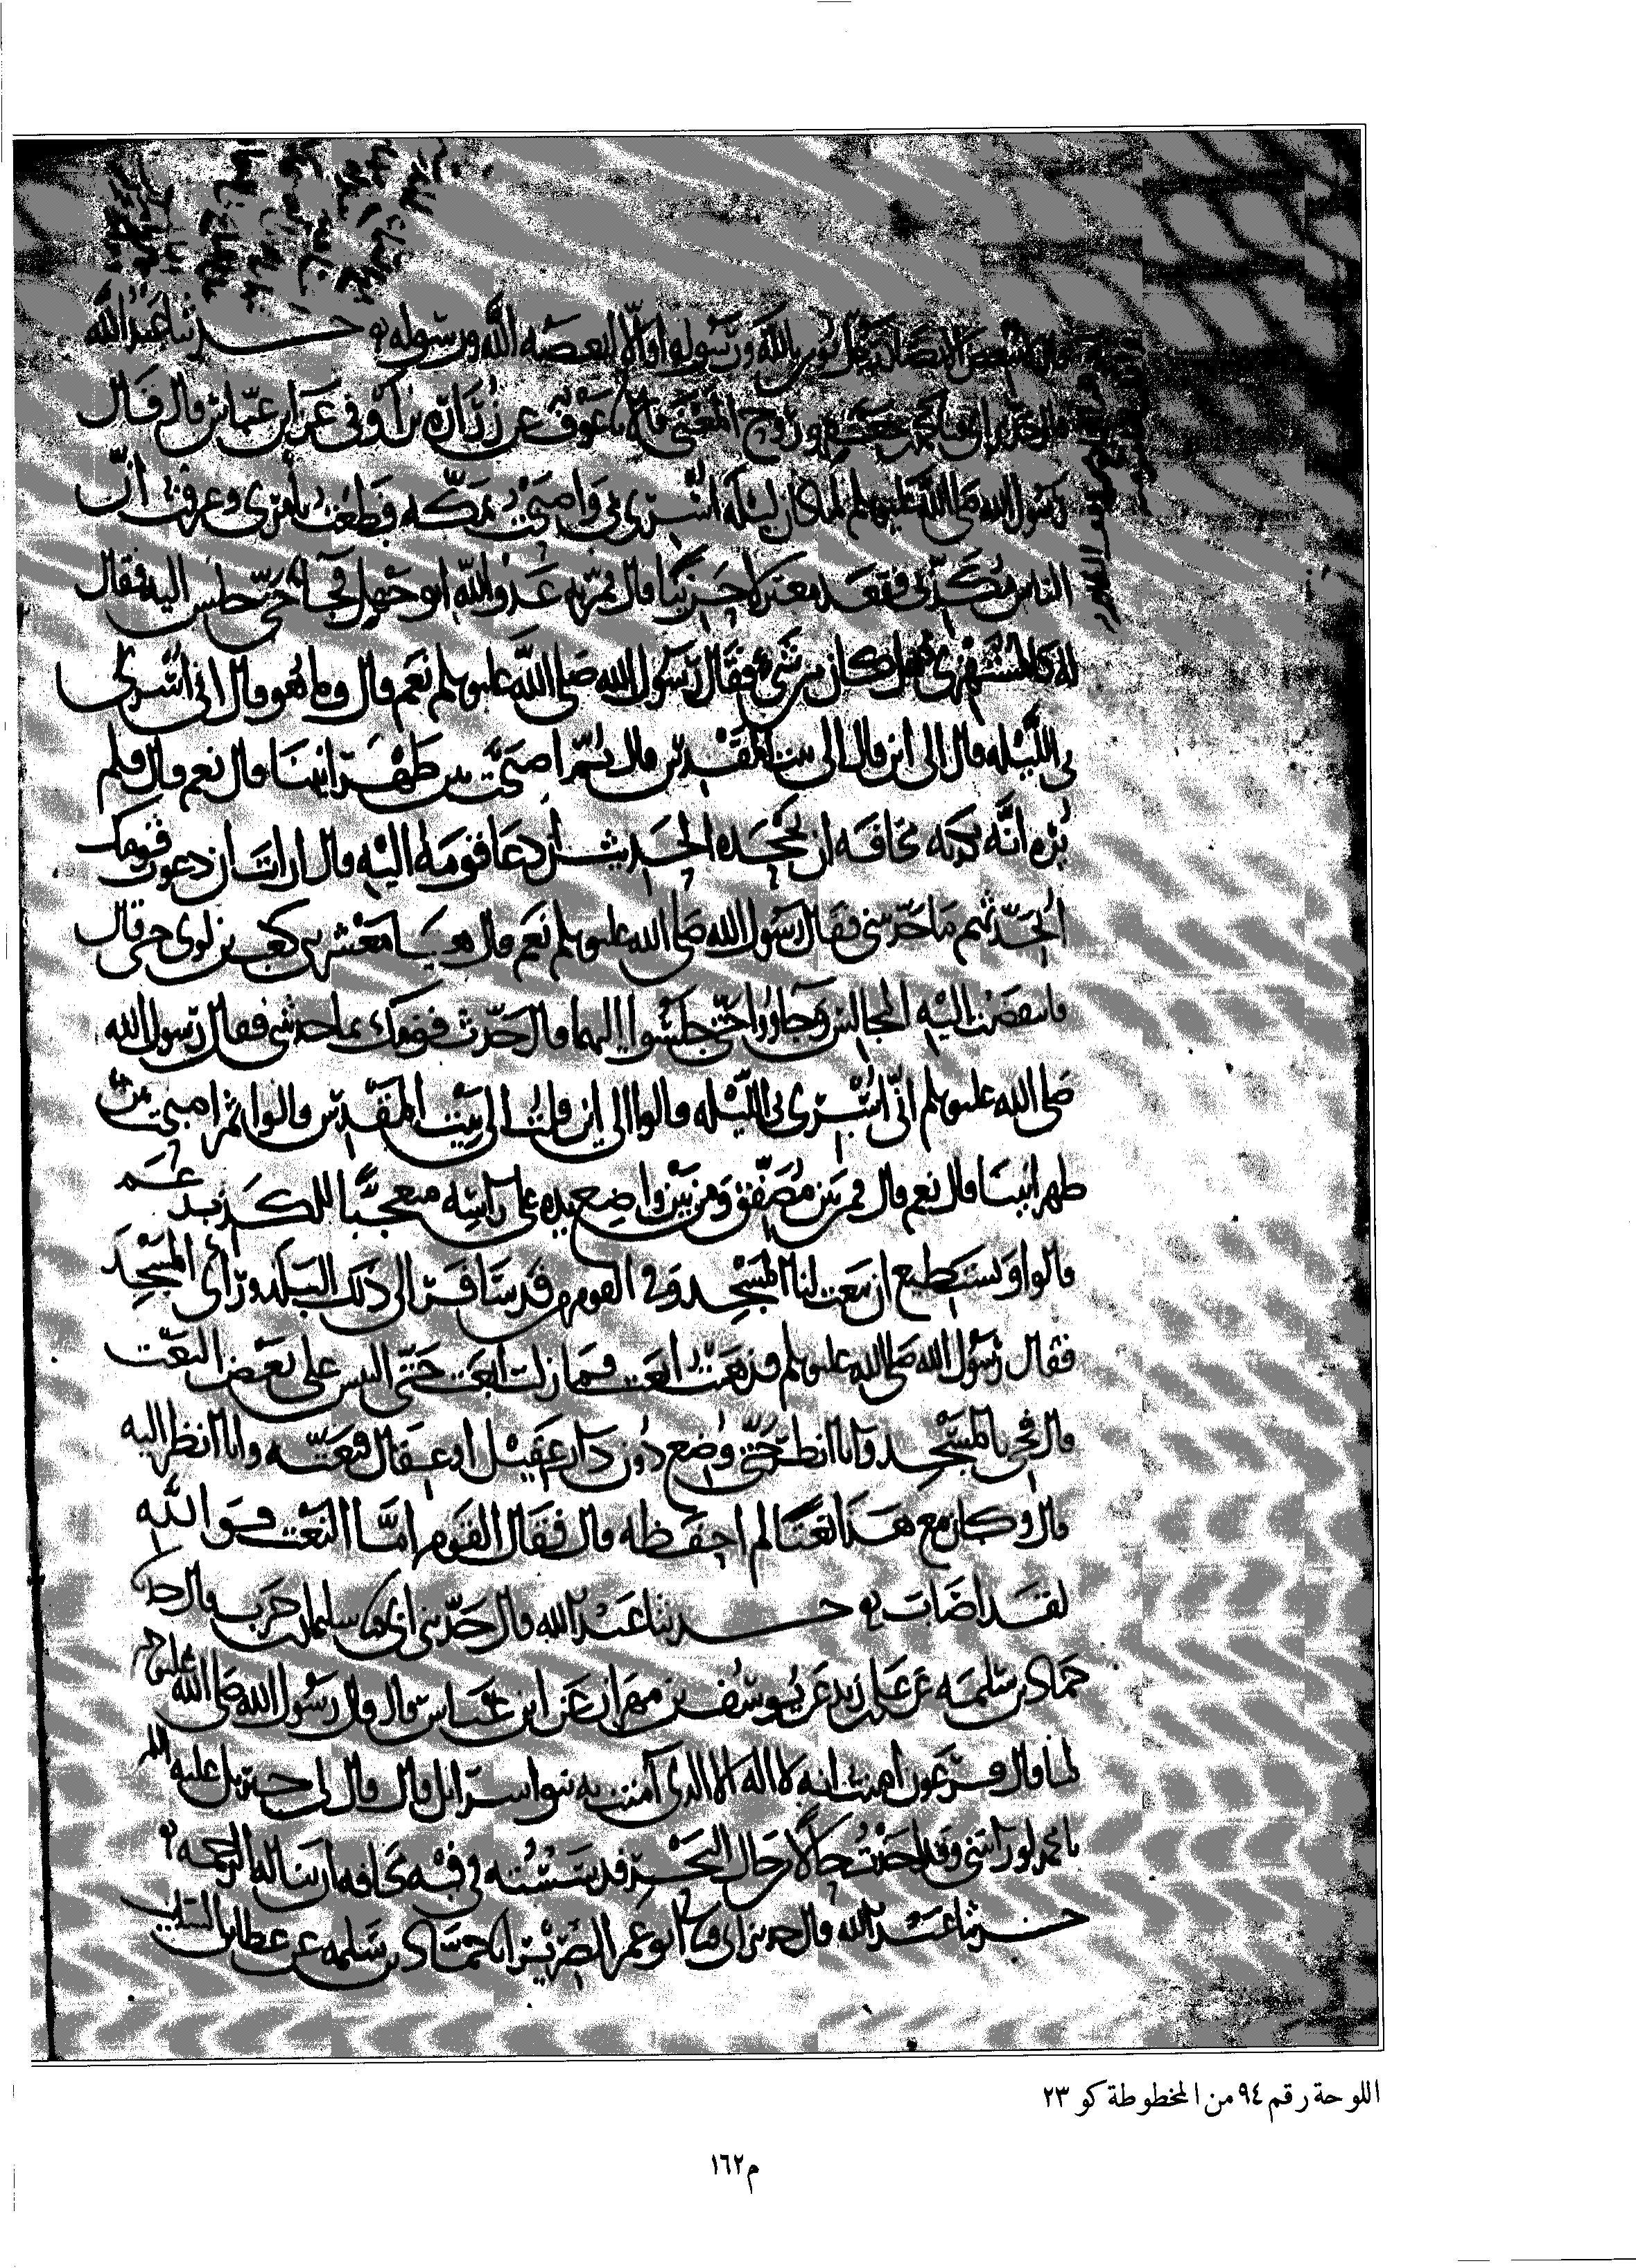 قال لا يبغض الانصار رجل يومن بالله ورسوله او الا ابغضه الله ورسوله حدثنا عبد الله
قال حدثني ابي محمد بن جعفر وروح المعنى قالا نا عوف عن زرارة بن اوفى عن ابن عباس قال قال
رسول الله صلى الله عليه وسلم لما كان ليلة اسري بي واصبحت بمكه فظعت بامري وعرفت ان
الناس مكذبي فقعد معتزلا حزينا قال فمر به عدو الله ابو جهل فجا حتى جلس اليه فقال
له كالمستهزئ هل كان من شيء فقال رسول الله صلى الله عليه وسلم نعم قال وما هو قال اني اسري
بي الليله قال الى اين قال الى بيت المقدس قال ثم اصبحت بين ظهرانينا قال نعم قال فلم
يره انه يكذبه مخافه ان يجحده الحديث ان دعا قومه اليه قال ارايت ان دعوت قومك
اتحدثهم ما حدثتني فقال رسول الله صلى الله عليه وسلم نعم قال هيا معشر بني كعب بن لوي حتى قال
فانتفضت اليه المجالس وجاؤوا حتى جلسوا اليهما قال حدث قومك بما حدثتني فقال رسول الله
صلى الله عليه وسلم اني اسري بي الليله قالوا الى اين قلت الى بيت المقدس قالوا ثم اصبحت بين
ظهرانينا قال نعم قال فمن بين مصفق ومن بين واضع يده على راسه متعجبا للكذب زعم
قالوا وتستطيع ان تنعت لنا المسجد وفي القوم من قد سافر الى ذلك البلد وراى المسجد
فقال رسول الله صلى الله عليه وسلم فذهبت انعت فما زلت انعت حتى التبس علي بعض النعت
قال فجئ بالمسجد وانا انظر حتى وضع دون دار عقيل او عقال فنعته وانا انظر اليه
قال وكان مع هذا نعتا لم احفظه قال فقال القوم اما النعت فوالله
لقد اصاب حدثنا عبد الله قال حدثني ابي نا سليمان بن حرب قال حدثنا
حماد بن سلمه عن علي بن زيد عن يوسف بن مهران عن ابن عباس قال قال رسول الله صلى الله عليه وسلم
لما قال فرعون امنت انه لا اله الا الذي آمنت به بنوا اسرايل قال قال لي جبريل عليه السلم
يا محمد لو رايتني وقد اخذت حالا من حال البحر فدسسته في فيه مخافه ان تناله الرحمه
حدثنا عبد الله قال حدثني ابي نا ابو عمر الضرير انا حماد بن سلمه عن عطا بن السايب
اللوحة رقم ٩٤ من المخطوطة كو ٢٣
م١٦٢